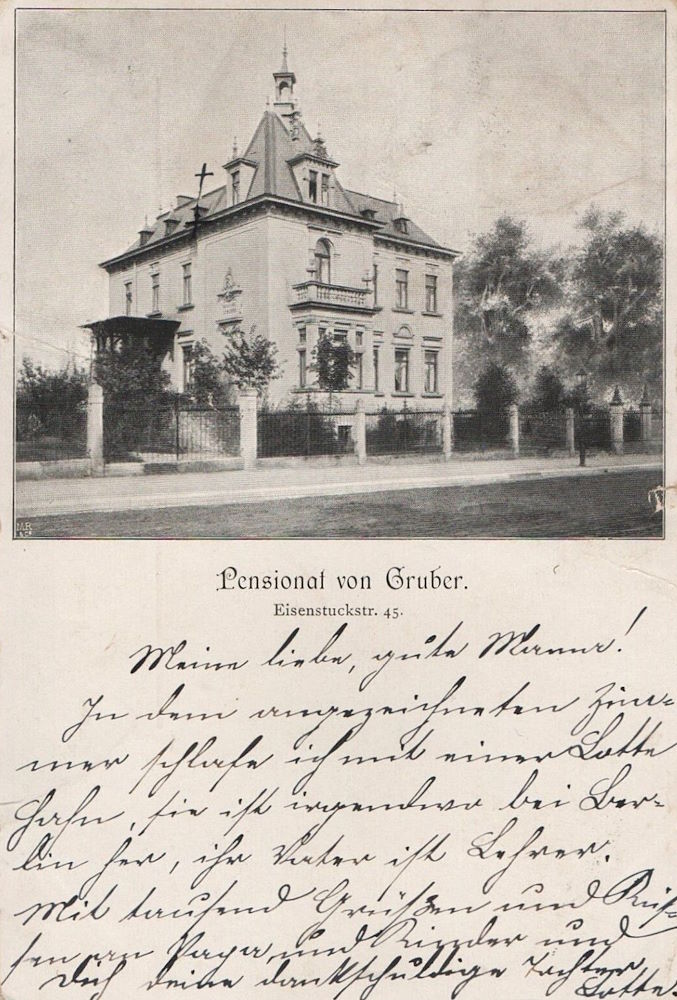 Pensionat von Gruber.
Eisenstuckstr. 45.
Meine liebe, gute Mama!
In dem angezeichneten Zim-
mer schlafe ich mit einer Lotte
Hahn, sie ist irgendwo bei Ber-
lin her, ihr Vater ist Lehrer.
Mit tausend Grüßen und Küs-
sen an Papa und Kinder und
Dich deine dankschuldige Tochter
Lotte.